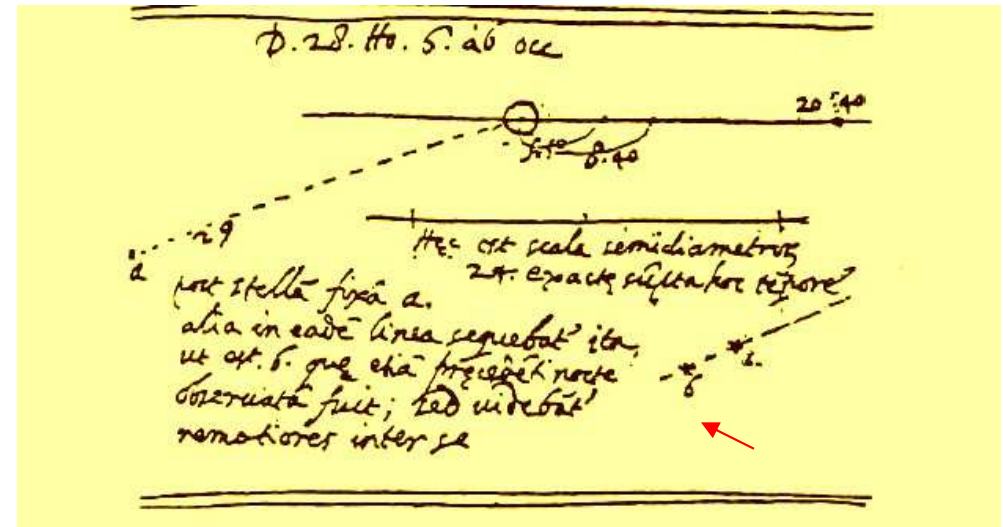 D. 28. Ho. 6. ab occ
20 40
8.40
29
a
Hęc est scala semidiametros
24. exacte sūpta hoc tēpore
post stellā fixā a.
alia in eadē linea sequebat' ita,
ut est. b. quę etiā pręcedēti nocte
obseruata fuit; sed uidebāt'
remotiores inter se
a.
b